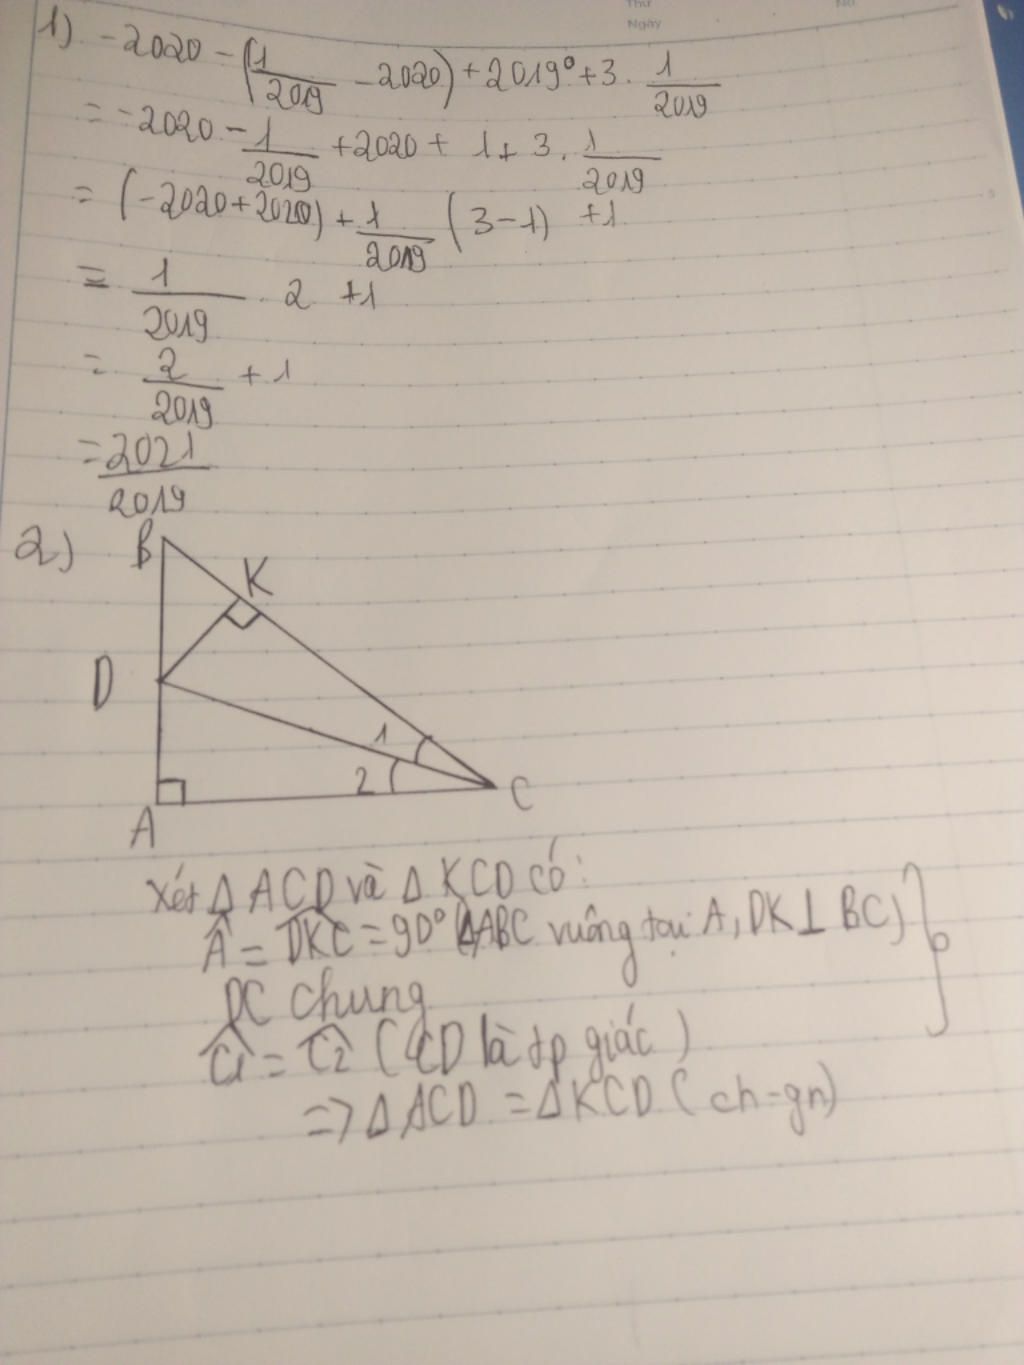 Thứ
No.
Ngày
1) -2020 - (1/2019 - 2020) + 2019⁰ + 3 . 1/2019
= -2020 - 1/2019 + 2020 + 1 + 3 . 1/2019
= (-2020 + 2020) + 1/2019 (3-1) +1
= 1/2019 . 2 +1
= 2/2019 + 1
= 2021/2019
2)
B
K
D
1
2
C
A
Xét Δ ACD và Δ KCD có:
Â = DKĈ = 90° (ΔABC vuông tại A, DK⊥BC)
DC chung
Ĉ1 = Ĉ2 (CD là tp giác)
=> Δ ACD = Δ KCD (ch-gn)